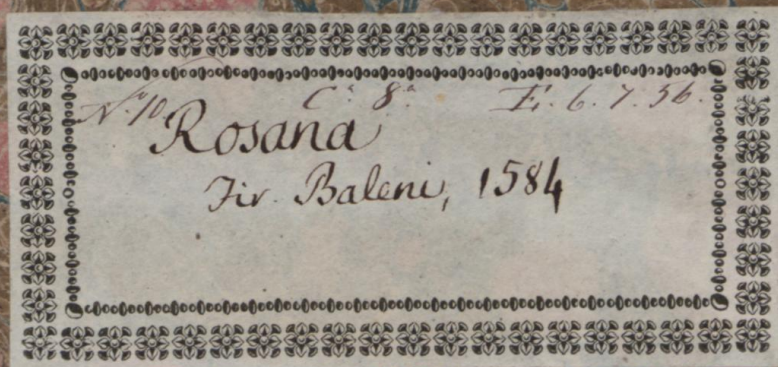 N.º 10. C.ª 8.ª E. 6. 7. 56.
Rosana
Fir. Baleni, 1584